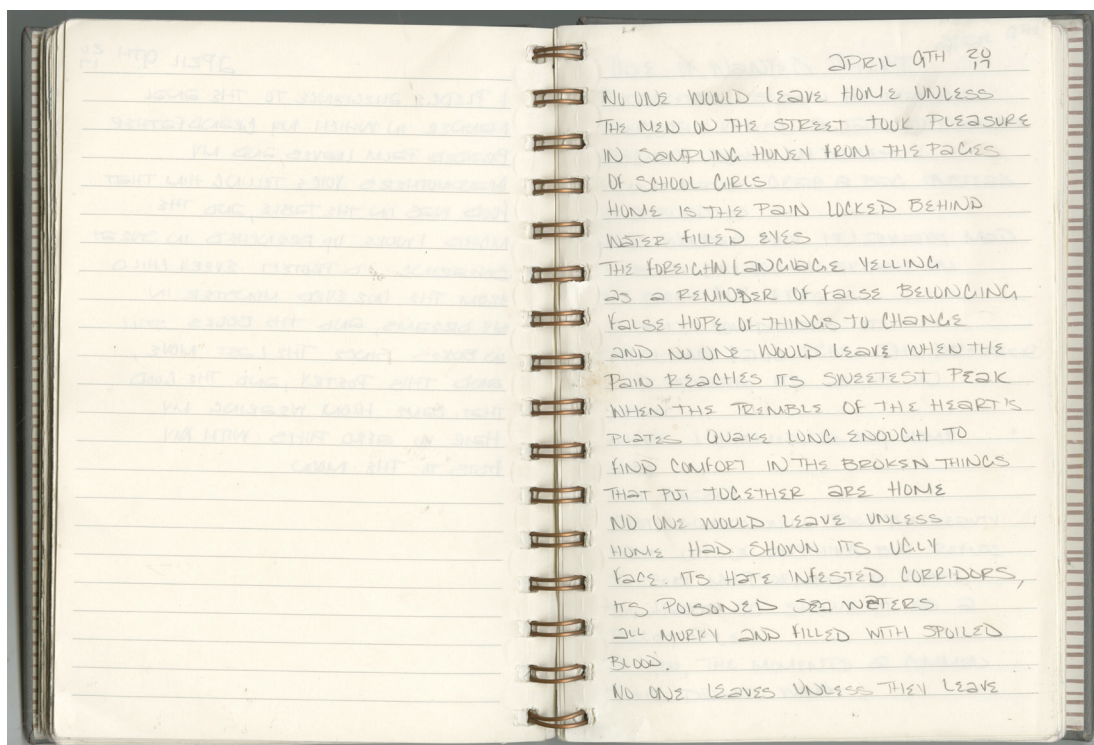 APRIL 9TH 2017
NO ONE WOULD LEAVE HOME UNLESS
THE MEN ON THE STREET TOOK PLEASURE
IN SAMPLING HONEY FROM THE PAGES
OF SCHOOL GIRLS
HOME IS THE PAIN LOCKED BEHIND
WATER FILLED EYES
THE FOREIGHN LANGUAGE YELLING
AS A REMINDER OF FALSE BELONGING
FALSE HOPE OF THINGS TO CHANGE
AND NO ONE WOULD LEAVE WHEN THE
PAIN REACHES ITS SWEETEST PEAK
WHEN THE TREMBLE OF THE HEART'S
PLATES QUAKE LONG ENOUGH TO
FIND COMFORT IN THE BROKEN THINGS
THAT PUT TOGETHER ARE HOME
NO ONE WOULD LEAVE UNLESS
HOME HAD SHOWN ITS UGLY
FACE. ITS HATE INFESTED CORRIDORS,
ITS POISONED SEA WATERS
ALL MURKY AND FILLED WITH SPOILED
BLOOD.
NO ONE LEAVES UNLESS THEY LEAVE